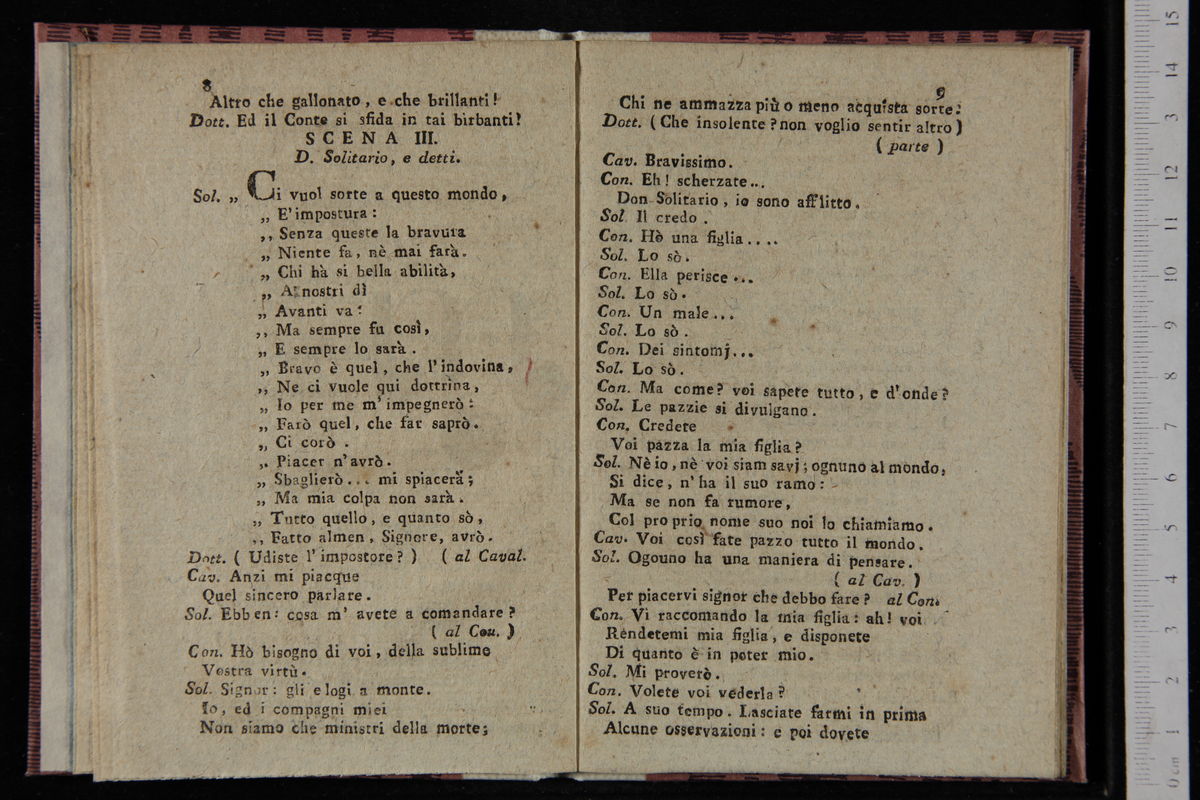 8
Altro che gallonato, e che brillanti!
Dott. Ed il Conte si sfida in tai birbanti!
SCENA III.
D. Solitario, e detti.
Sol. „ Ci vuol sorte a questo mondo,
„ E' impostura:
,, Senza queste la bravura
„ Niente fa, nè mai farà.
„ Chi hà si bella abilità,
„ A nostri dì
„ Avanti va:
,, Ma sempre fu così,
„ E sempre lo sarà.
„ Bravo è quel, che l'indovina,
,, Ne ci vuole qui dottrina,
„ Io per me m'impegnerò:
„ Farò quel, che far saprò.
„ Ci corò.
„ Piacer n'avrò.
„ Sbaglierò... mi spiacerà;
„ Ma mia colpa non sarà.
„ Tutto quello, e quanto sò,
,, Fatto almen, Signore, avrò.
Dott. (Udiste l'impostore?) (al Caval.
Cav. Anzi mi piacque
Quel sincero parlare.
Sol. Ebben: cosa m'avete a comandare?
(al Cou.)
Con. Hò bisogno di voi, della sublime
Vostra virtù.
Sol. Signor: gli elogi a monte.
Io, ed i compagni miei
Non siamo che ministri della morte;
9
Chi ne ammazza più o meno acquista sorte:
Dott. (Che insolente? non voglio sentir altro)
(parte)
Cav. Bravissimo.
Con. Eh! scherzate...
Don Solitario, io sono afflitto.
Sol Il credo.
Con. Hò una figlia....
Sol. Lo sò.
Con. Ella perisce...
Sol. Lo sò.
Con. Un male...
Sol. Lo sò.
Con. Dei sintomj...
Sol. Lo sò.
Con. Ma come? voi sapete tutto, e d'onde?
Sol. Le pazzie si divulgano.
Con. Credete
Voi pazza la mia figlia?
Sol. Nè io, nè voi siam savj; ognuno al mondo,
Si dice, n'ha il suo ramo:
Ma se non fa rumore,
Col proprio nome suo noi lo chiamiamo.
Cav. Voi così fate pazzo tutto il mondo.
Sol. Ogouno ha una maniera di pensare.
(al Cav.)
Per piacervi signor che debbo fare? al Con.
Con. Vi raccomando la mia figlia: ah! voi
Rèndetemi mia figlia, e disponete
Di quanto è in poter mio.
Sol. Mi proverò.
Con. Volete voi vederla?
Sol. A suo tempo. Lasciate farmi in prima
Alcune osservazioni: e poi dovete
0 cm 1 2 3 4 5 6 7 8 9 10 11 12 13 14 15